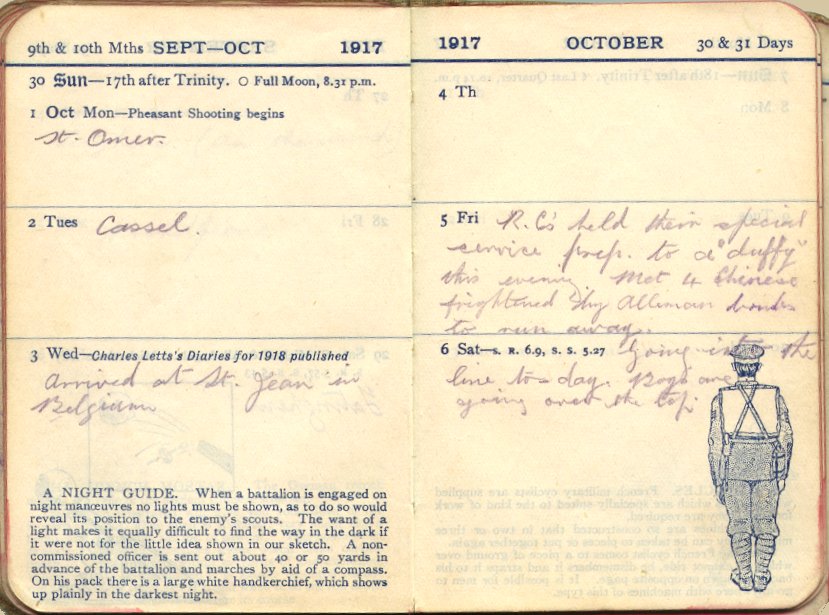 9th & 10th Mths SEPT—OCT 1917
30 Sun—17th after Trinity. O Full Moon, 8.31 p.m.
1 Oct Mon—Pheasant Shooting begins
St. Omer.
2 Tues Cassel.
3 Wed—Charles Letts's Diaries for 1918 published
Arrived at St. Jean in
Belgium
A NIGHT GUIDE. When a battalion is engaged on
night manœuvres no lights must be shown, as to do so would
reveal its position to the enemy's scouts. The want of a
light makes it equally difficult to find the way in the dark if
it were not for the little idea shown in our sketch. A non-
commissioned officer is sent out about 40 or 50 yards in
advance of the battalion and marches by aid of a compass.
On his pack there is a large white handkerchief, which shows
up plainly in the darkest night.
1917 OCTOBER 30 & 31 Days
4 Th
5 Fri R.C's held their special
service prep. to a "duffy"
this evening. Met 4 Chinese
frightened by Alleman bombs
to run away.
6 Sat—S. R. 6.9, S. S. 5.27 Going into the
line to-day. Boys are
going over the top.